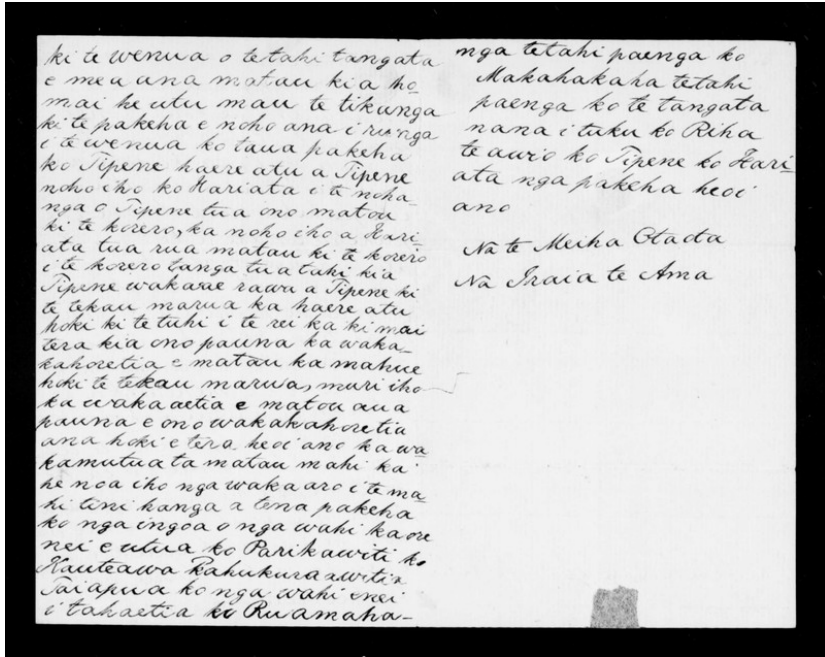 ki te wenua o te tahi tangata
e mea ana matau kia ho
mai he utu mau te tikunga
ki te pakeha e noho ana i runga
i te wenua ko taua pakeha
ko Tipene haere atu a Tipene
noho iho ko Hariata i te noha_
nga o Tipene tua ono matou
ki te korero, ka noho iho a Hari_
ata tua rua matau ki te korero
i te korero tanga tua tahi kia
Tipene wakaae rawa a Tipene ki
te tekau marua ka haere atu
hoki ki te tuhi i te rei ka ki mai
tera kia ono pauna ka waka_
kahoretia e matau ka mahue
hoki te tekau marua, muri iho
ka waka aetia e matou aua
pauna e ono wakakahoretia
ana hoki e tera heoi ano ka wa_
kamutua ta matau mahi ka
he noa iho nga waka aro i te ma_
hi tini hanga a tena pakeha
ko nga ingoa o nga wahi kaore
nei e utua ko Parikawiti ko
Kauteawa Rahukura
Taiapua ko nga wahi enei
i takaetia ko Ruamaha_
nga tetahi paenga ko
Makahakaha tetahi
paenga ko te tangata
nana i tuku ko Riha
te awio ko Tipene ko Hari_
ata nga pakeha heoi
ano
Na te Meiha Otaota
Na Iraia te Ama